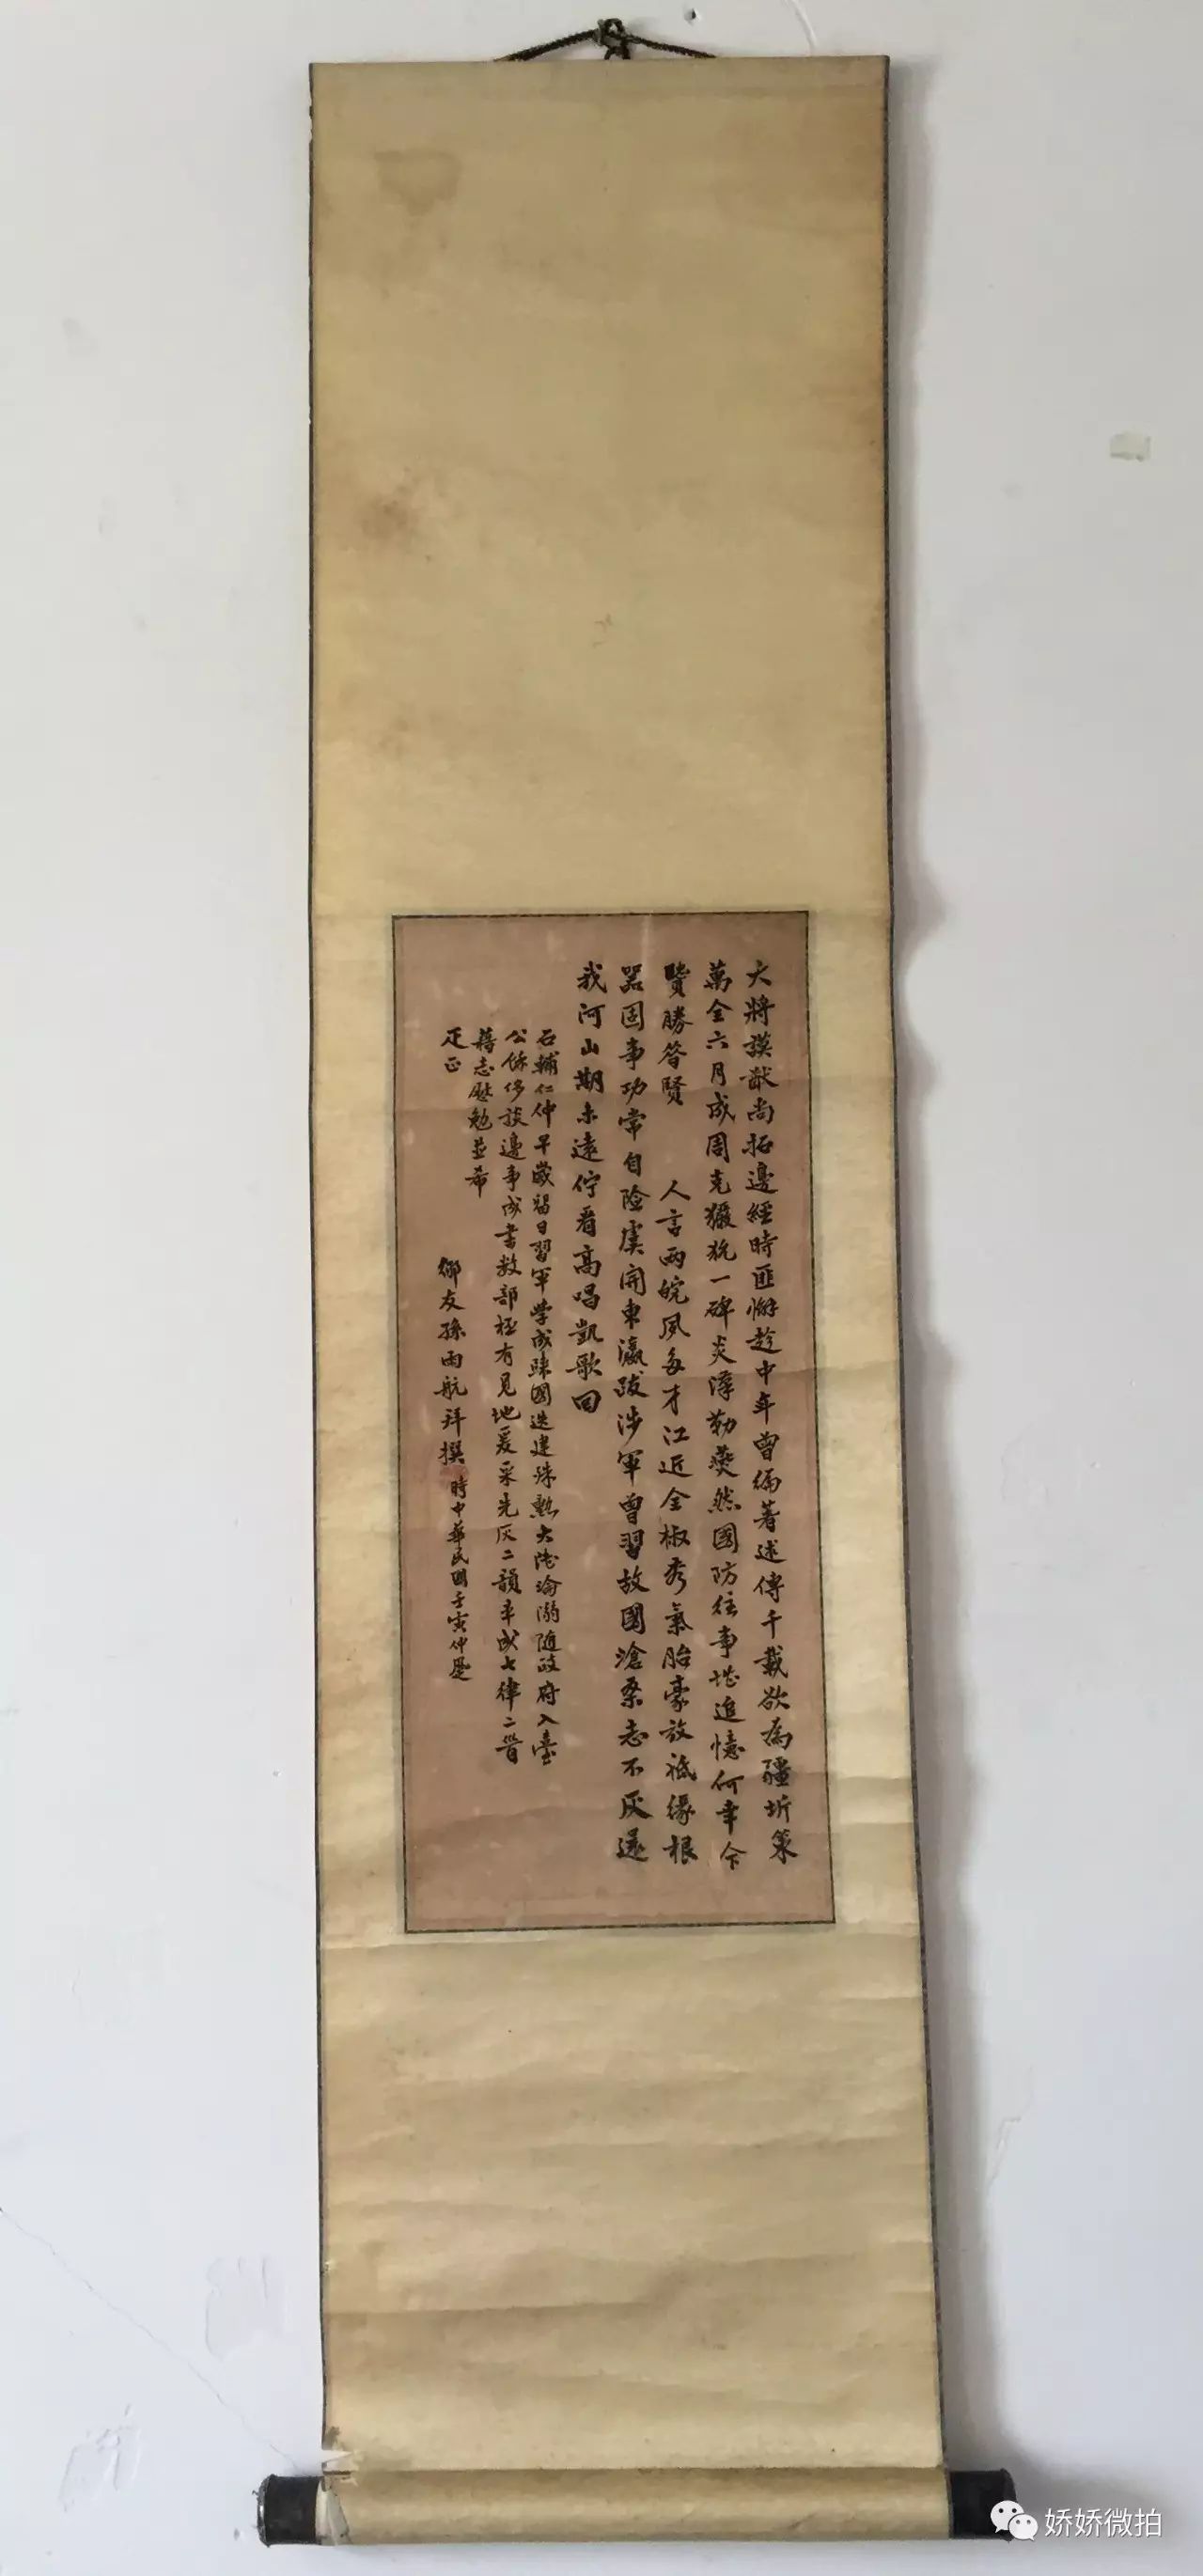 大將謨猷尚拓邊經時匪懈趁中年曾編著述傳千載欲為疆圻策
萬全六月成周克玁狁一碑炎漳勒燕然國防往事堪追憶何幸今
賢勝答賢 人言兩皖夙多才江近全椒秀氣胎豪放祇緣根
器固事功常自險虞開東瀛跋涉軍曾習故國滄桑志不灰還
我河山期未遠佇看高唱凱歌回
石輔仁仲早歲留日習軍學成歸國迭建殊勳大陸淪溺隨政府入臺
公餘侈談邊事成書數部極有見地爰采先灰二韻率成七律二首
藉志慰勉並希
疋正
鄉友孫雨航拜撰 時中華民國壬寅仲夏
娇娇微拍